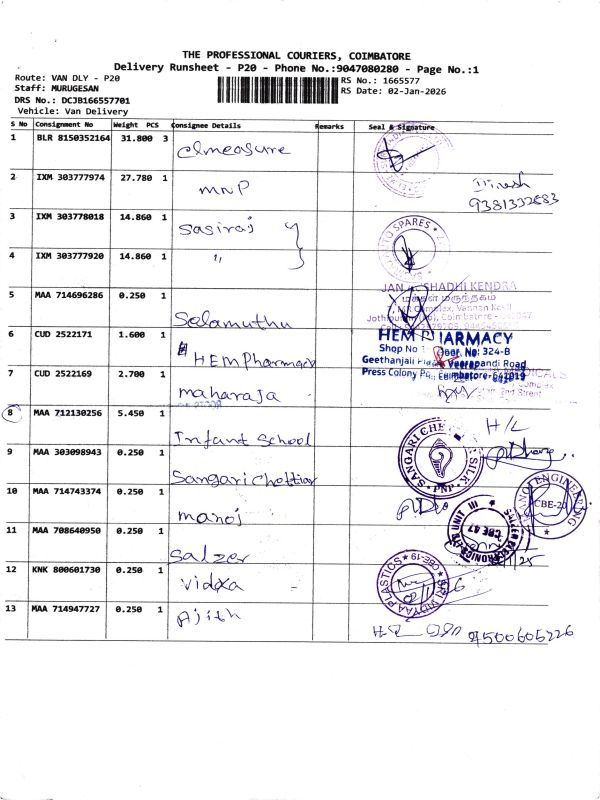 THE PROFESSIONAL COURIERS, COIMBATORE
Delivery Runsheet - P20 - Phone No.:9047080280 - Page No.:1
Route: VAN DLY - P20
Staff: MURUGESAN
DRS No.: DCJB166557701
Vehicle: Van Delivery
RS No.: 1665577
RS Date: 02-Jan-2026
S No Consignment No Weight PCS Consignee Details Remarks Seal & Signature
1 BLR 8150352164 31.800 3 elmeasure
2 IXM 303777974 27.780 1 MNP
9381332683
3 IXM 303778018 14.860 1 Sasiraj
SPARES
4 IXM 303777920 14.860 1 "
5 MAA 714696286 0.250 1 Selamuthu
SHADHI KENDRA
மக்கள் மருந்தகம்
6 CUD 2522171 1.600 1 HEM Pharmacy
HEM PHARMACY
Shop No Door. No: 324-B
Geethanjali Veerapandi Road
Press Colony Coimbatore-641019
7 CUD 2522169 2.700 1 maharaja
8 MAA 712130256 5.450 1 Infant School
H/L
9 MAA 303098943 0.250 1 Sangari Chettiar
SANGARI CHE SILK PNP
10 MAA 714743374 0.250 1 manoj
MANOJ ENGINEERING
CBE-23
11 MAA 708640950 0.250 1 Salzer
SALZER ELECTRONICS LTD UNIT III
CBE 47
12 KNK 800601730 0.250 1 Vidxa
SRI VIDYAA PLASTICS CBE-19
13 MAA 714947727 0.250 1 Ajith
9500605226